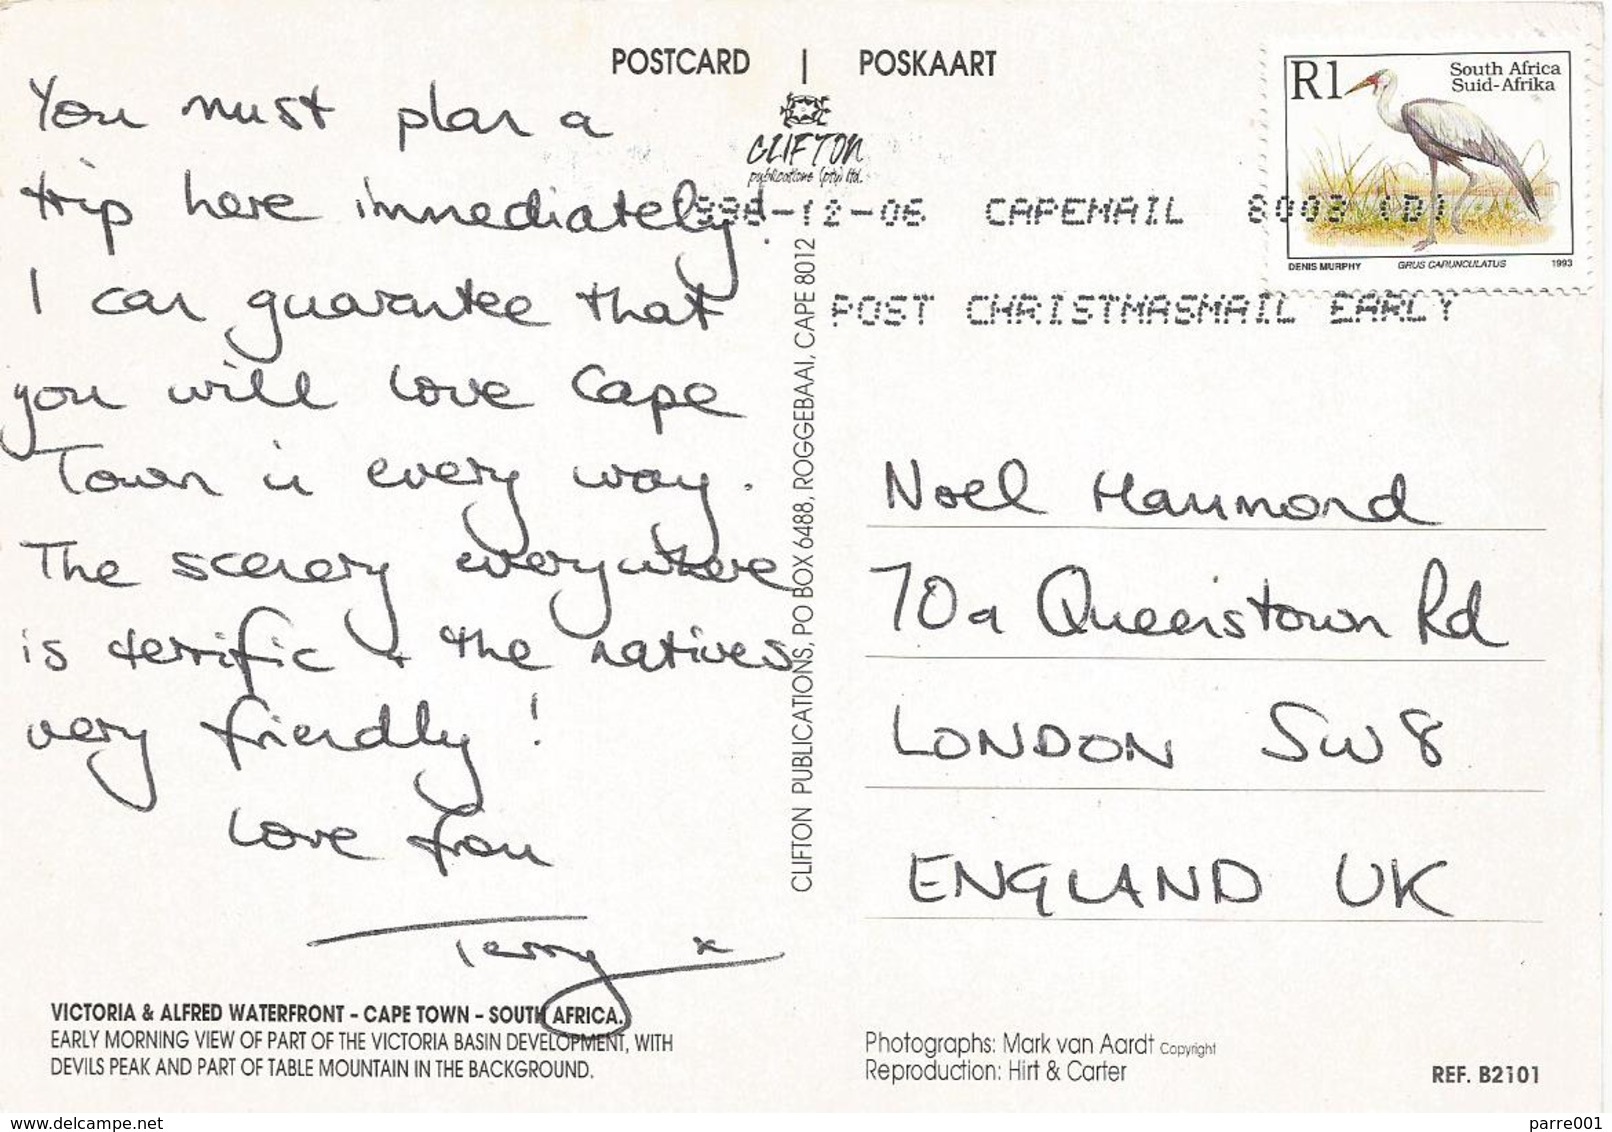 POSTCARD | POSKAART
CLIFTON
publications (pty) ltd.
R1
South Africa
Suid-Afrika
DENIS MURPHY GRUS CARUNCULATUS 1993
-12-06 CAPEMAIL 8003 (D)
POST CHRISTMASMAIL EARLY
You must plan a
trip here immediately!
I can guarantee that
you will love Cape
Town in every way.
The scenery everywhere
is terrific + the natives
very friendly!
Love from
Terry x
CLIFTON PUBLICATIONS, PO BOX 6488, ROGGEBAAI, CAPE 8012
Noel Hammond
70a Queenstown Rd
LONDON SW8
ENGLAND UK
VICTORIA & ALFRED WATERFRONT - CAPE TOWN - SOUTH AFRICA.
EARLY MORNING VIEW OF PART OF THE VICTORIA BASIN DEVELOPMENT, WITH
DEVILS PEAK AND PART OF TABLE MOUNTAIN IN THE BACKGROUND.
Photographs: Mark van Aardt Copyright
Reproduction: Hirt & Carter
REF. B2101
www.delcampe.net
parre001